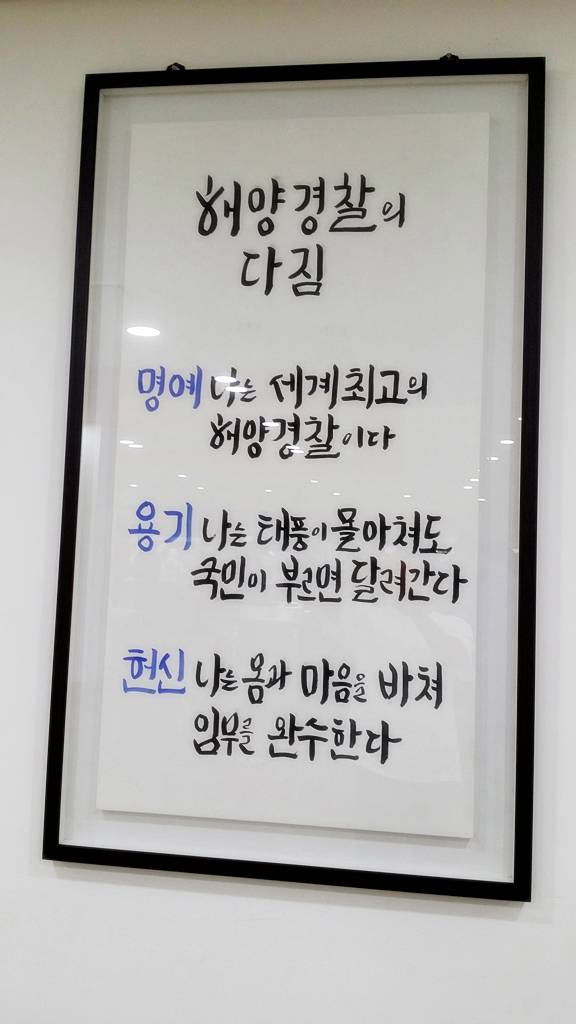 해양경찰의
다짐
명예 나는 세계최고의
해양경찰이다
용기 나는 태풍이 몰아쳐도
국민이 부르면 달려간다
헌신 나는 몸과 마음을 바쳐
임무를 완수한다